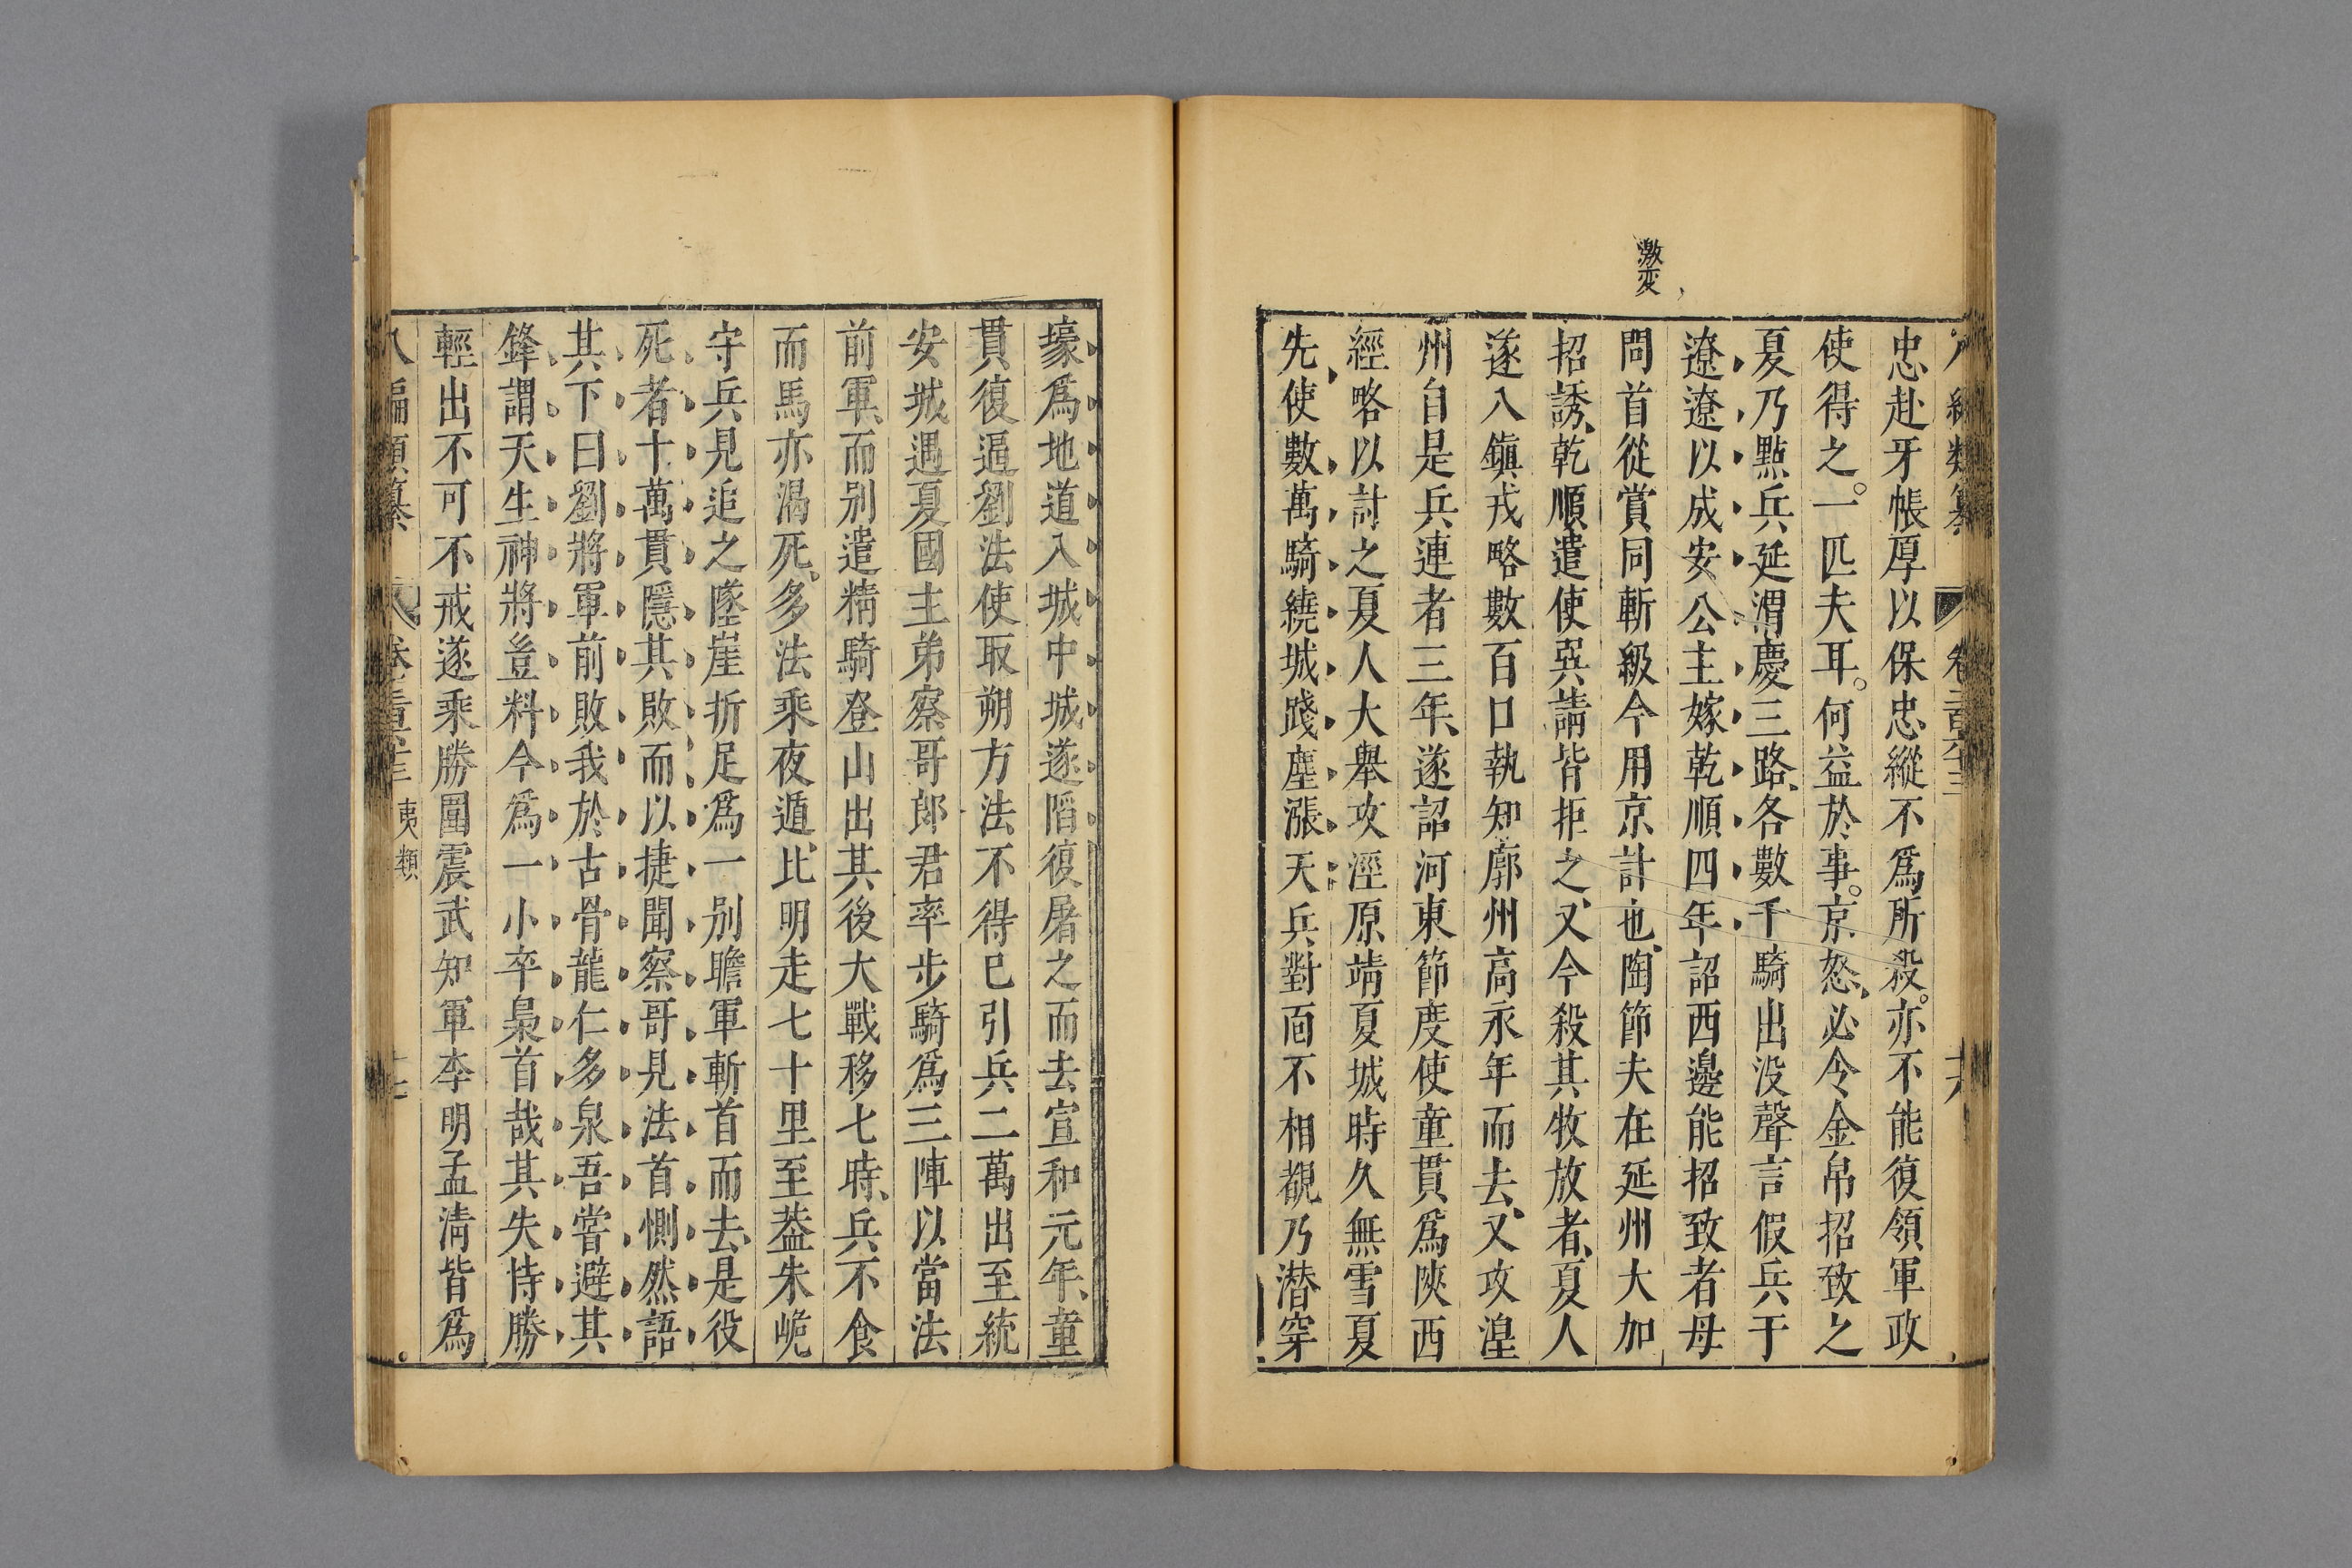 八編類纂 卷二百六十三 十六
激変
忠赴牙帳厚以保忠縱不爲所殺。亦不能復領軍政
使得之。一匹夫耳。何益於事。京怒、必令金帛招致之
夏乃㸃兵延渭慶三路、各數千騎出没聲言假兵于
遼遼以成安公主嫁乾順四年詔西邊能招致者毋
問首從賞同斬級今用京計也、陶節夫在延州大加
招誘、乾順遣使巽請皆拒之、又令殺其牧放者、夏人
遂入鎭戎略數百口執知鄜州高永年而去、又攻湟
州自是兵連者三年、遂詔河東節度使童貫爲陝西
經略以計之夏人大舉攻涇原靖夏城時久無雪夏
先使數萬騎繞城踐塵漲天兵對面不相覩乃潜穿
壕爲地道入城中城遂䧟復屠之而去宣和元年、童
貫復逼劉法使取朔方法不得已引兵二萬出至統
安城遇夏國主弟察哥郎君率步騎爲三陣以當法
前軍、而别遣精騎登山出其後大戰移七時、兵不食
而馬亦渴死、多法乘夜遁、比明走七十里至葢朱峗
守兵見追之墜崖折足爲一别瞻軍斬首而去、是役
死者十萬貫隱其敗而以捷聞察哥見法首惻然語
其下曰劉將軍前敗我於古骨龍仁多泉吾嘗避其
鋒謂天生神將豈料今爲一小卒梟首哉其失恃勝
輕出不可不戒遂乘勝圍震武知軍李明孟清皆爲
八編類纂 卷二百六十三 夷類 十七